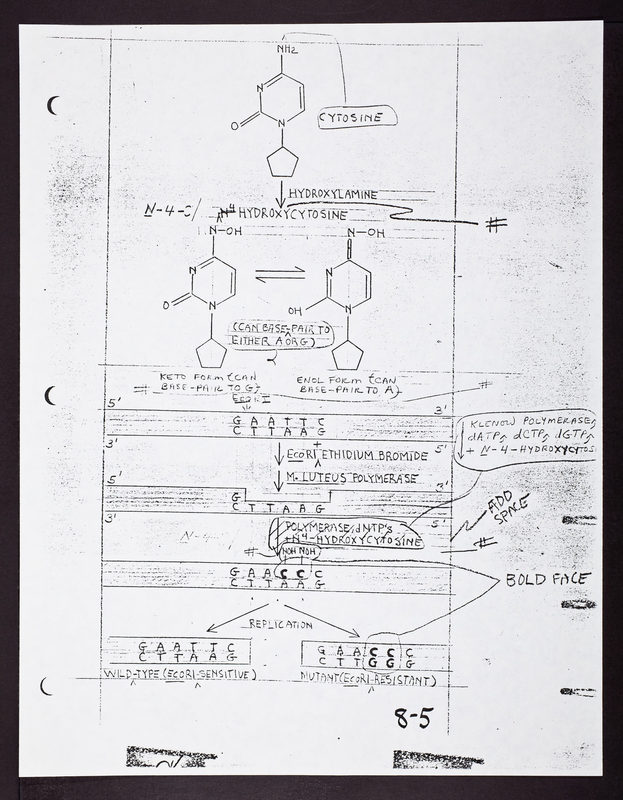 NH2
N
O
N
CYTOSINE
HYDROXYLAMINE
N-4-
N4 HYDROXYCYTOSINE
#
N-OH
N-OH
N
O
N
N
OH
N
(CAN BASE-PAIR TO
EITHER A OR G)
KETO FORM (CAN
BASE-PAIR TO G)
ENOL FORM (CAN
BASE-PAIR TO A)
#
#
EcoRI
5'
3'
G A A T T C
C T T A A G
3'
5'
KLENOW POLYMERASE,
dATP, dCTP, dGTP,
+ N-4-HYDROXYCYTOS
EcoRI + ETHIDIUM BROMIDE
M. LUTEUS POLYMERASE
5'
3'
G
C T T A A G
3'
5'
ADD
SPACE
POLYMERASE, dNTP's
+N4-HYDROXYCYTOSINE
N-4-
#
#
NOH NOH
G A A C C C
C T T A A G
BOLD FACE
REPLICATION
G A A T T C
C T T A A G
G A A C C C
C T T G G G
WILD-TYPE (EcoRI-SENSITIVE)
MUTANT (EcoRI-RESISTANT)
8-5